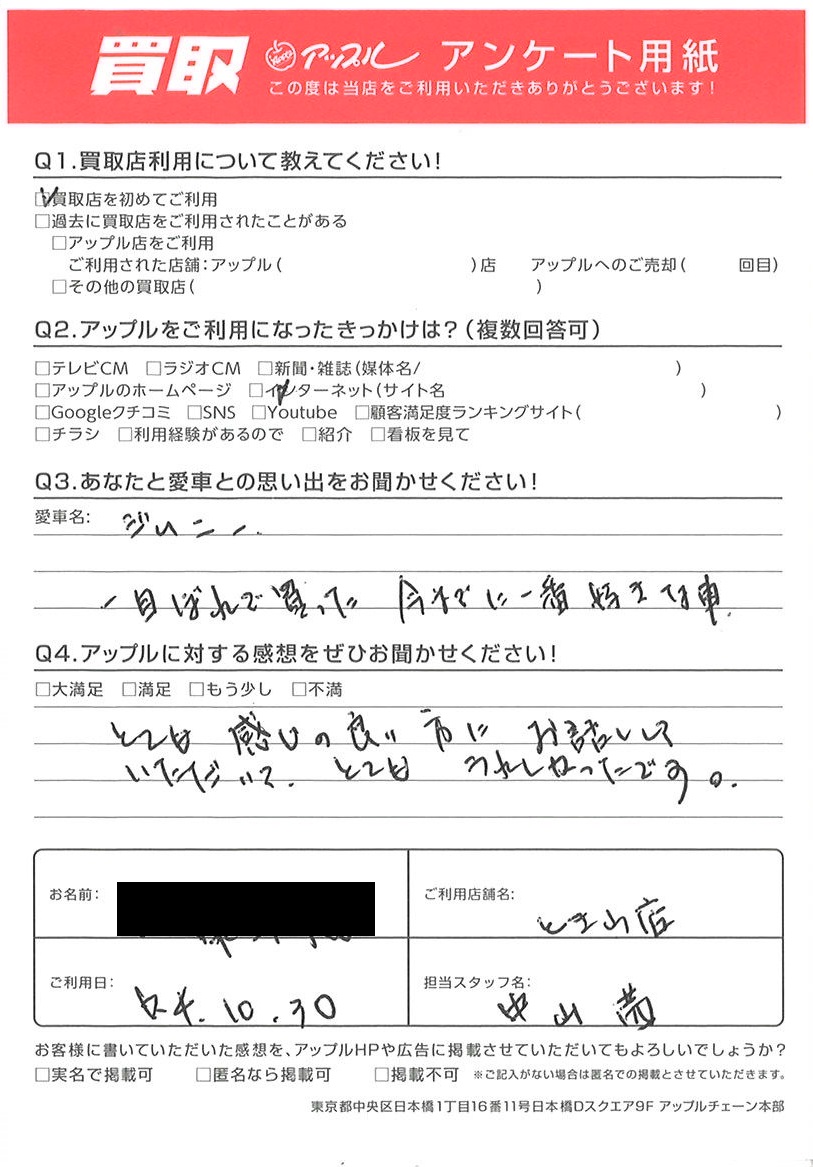 買取 アップル アンケート用紙
この度は当店をご利用いただきありがとうございます！
Q1.買取店利用について教えてください！
☑買取店を初めてご利用
□過去に買取店をご利用されたことがある
□アップル店をご利用
ご利用された店舗：アップル（ ）店 アップルへのご売却（ 回目）
□その他の買取店（ ）
Q2.アップルをご利用になったきっかけは？（複数回答可）
□テレビCM □ラジオCM □新聞・雑誌（媒体名/ ）
□アップルのホームページ □インターネット（サイト名 ）
□Googleクチコミ □SNS □Youtube □顧客満足度ランキングサイト（ ）
□チラシ □利用経験があるので □紹介 □看板を見て
Q3.あなたと愛車との思い出をお聞かせください！
愛車名： ジムニー.
一目ぼれで買った 今までに一番好きな車.
Q4.アップルに対する感想をぜひお聞かせください！
□大満足 □満足 □もう少し □不満
とても 感じの良い 方に お話しして
いただいて. とても うれしかったです。
お名前：
ご利用店舗名： 店
ご利用日： .10.30
担当スタッフ名： 中山
お客様に書いていただいた感想を、アップルHPや広告に掲載させていただいてもよろしいでしょうか？
□実名で掲載可 □匿名なら掲載可 □掲載不可 ※ご記入がない場合は匿名での掲載とさせていただきます。
東京都中央区日本橋1丁目16番11号日本橋Dスクエア9F アップルチェーン本部